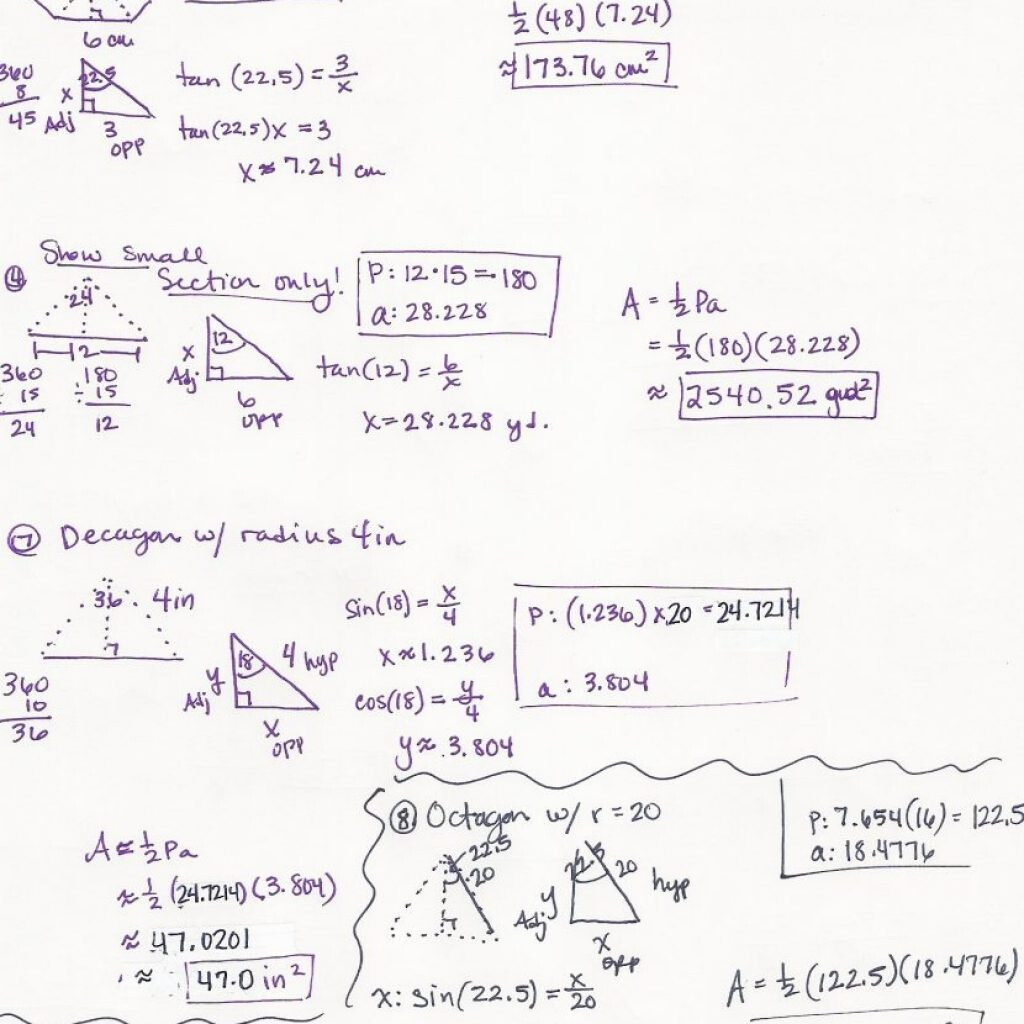 6 cm
360
8
45
22.5
x
Adj
3
opp
tan (22.5) = 3/x
tan(22.5)x = 3
x ≈ 7.24 cm
1/2 (48) (7.24)
≈ 173.76 cm²
④ Show small
Section only!
24
12
360
÷ 15
24
180
÷ 15
12
12
x
Adj
6
opp
P: 12·15 = 180
a: 28.228
tan(12) = 6/x
x = 28.228 yd.
A = 1/2 Pa
= 1/2 (180)(28.228)
≈ 2540.52
⑦ Decagon w/ radius 4in
36
4in
360
10
36
18
y
Adj
4 hyp
x
opp
sin(18) = x/4
x ≈ 1.236
cos(18) = y/4
y ≈ 3.804
P: (1.236) x 20 = 24.7214
a: 3.804
A ≈ 1/2 Pa
≈ 1/2 (24.7214)(3.804)
≈ 47.0201
≈ 47.0 in²
⑧ Octagon w/ r = 20
22.5
20
22.5
y
Adj
20
hyp
x
opp
x: sin(22.5) = x/20
P: 7.654(16) = 122.5
a: 18.4776
A = 1/2 (122.5)(18.4776)